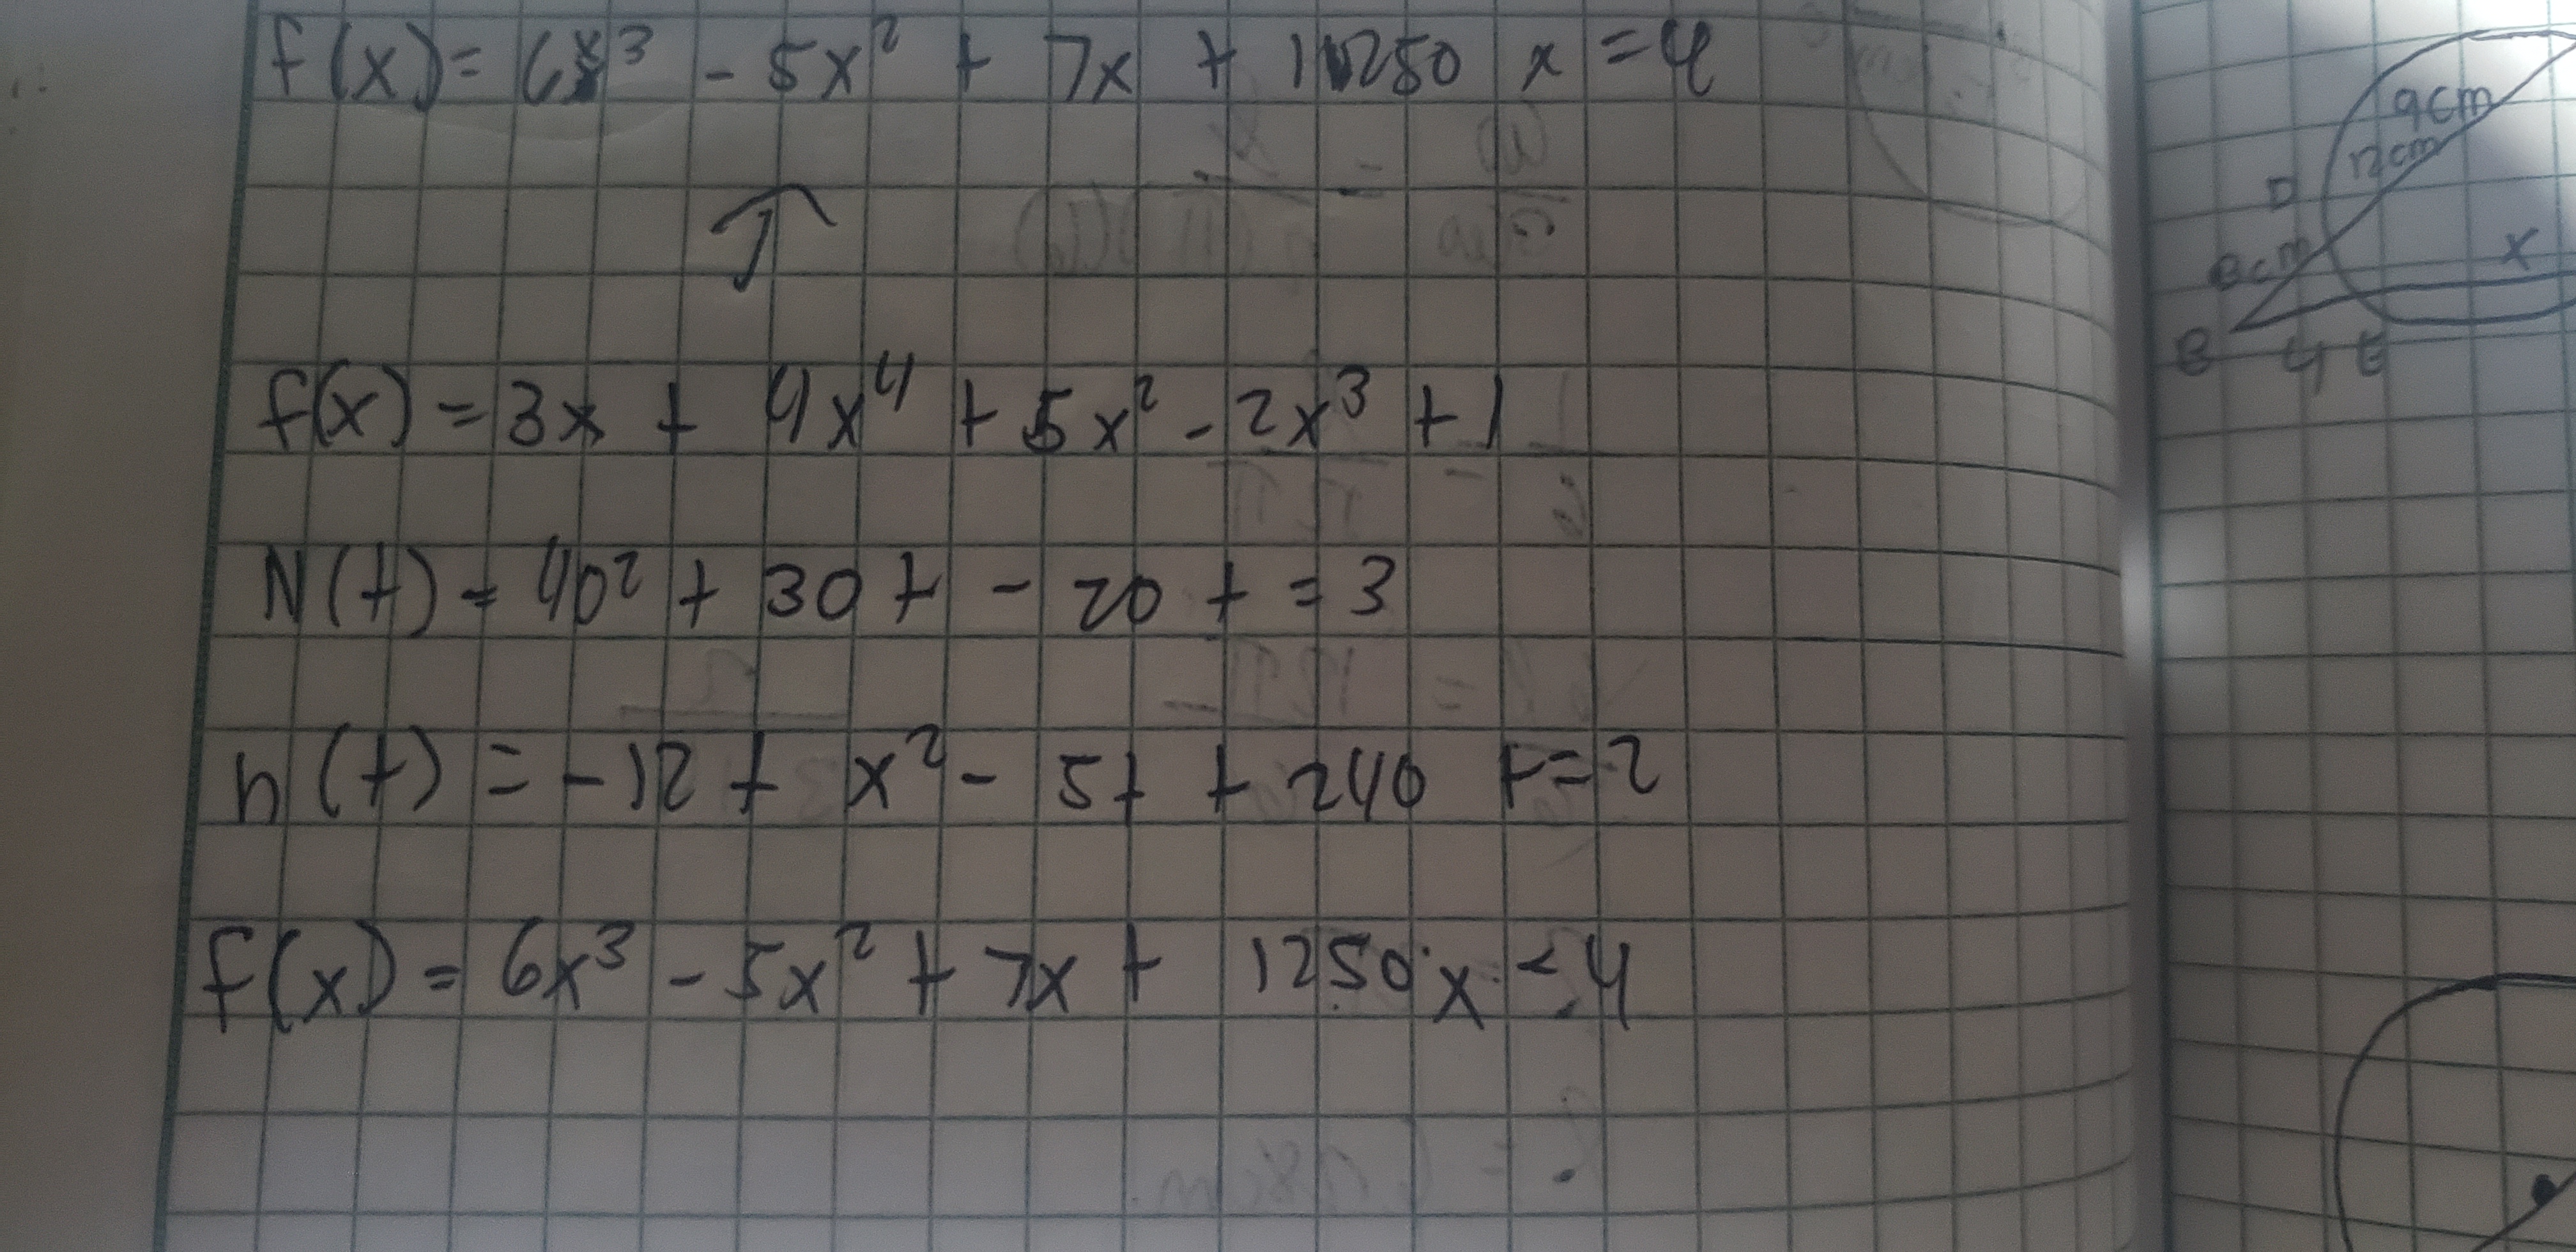 f(x) = 6x³ - 5x² + 7x + 1250 x = 4
f(x) = 3x + 4x⁴ + 5x² - 2x³ + 1
N(t) = 40² + 30t - 20 t = 3
h(t) = -12t x² - 5t + 240 t=2
f(x) = 6x³ - 5x² + 7x + 1250. x = 4
B 4 E
8cm
D
12cm
9cm
x